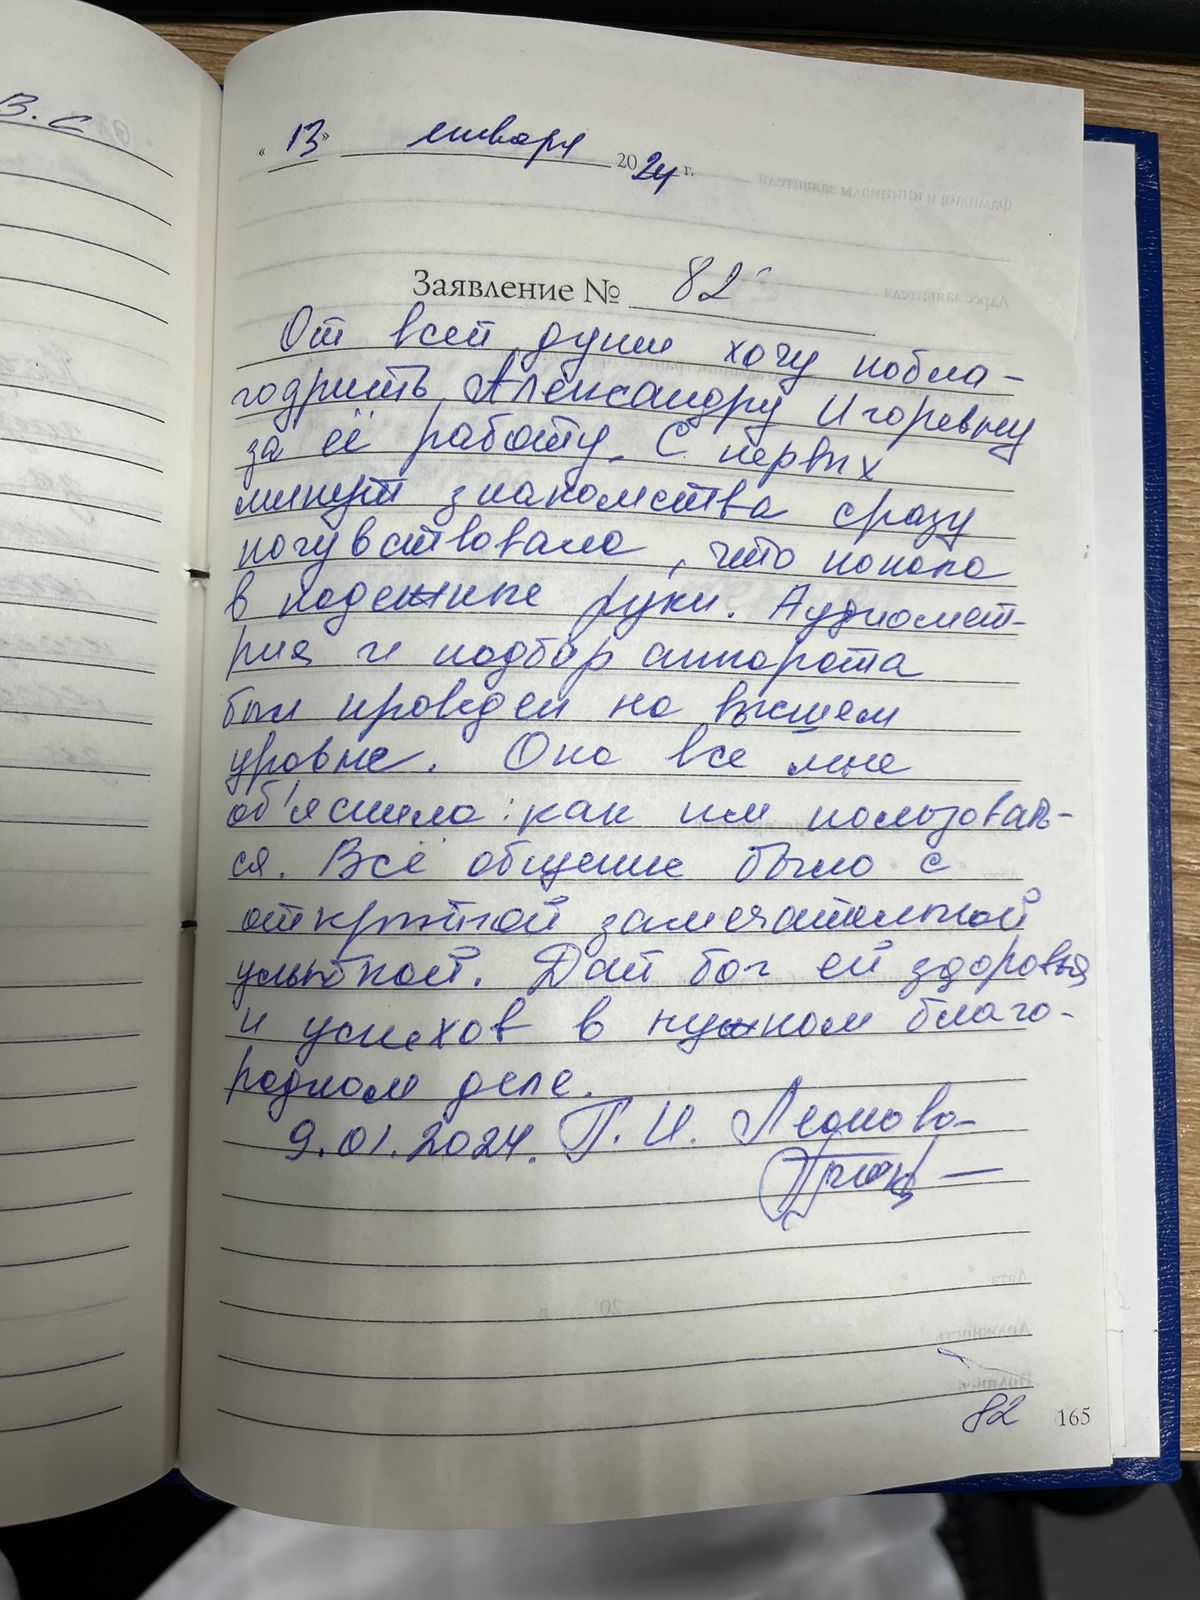 В. С
« 13 » января 2024 г.
Заявление № 82
От всей души хочу побла-
годрить Александру Игоревну
за её работу. С первых
минут знакомства сразу
почувствовала, что попала
в надежные руки. Аудиомет-
рия и подбор аппарата
был проведен на высшем
уровне. Она все мне
об'яснила: как им пользовать-
ся. Всё общение было с
открытой замечательной
улыбкой. Дай бог ей здоровья
и успехов в нужном благо-
родном деле.
9.01.2024. П. И. Леонова
82 165